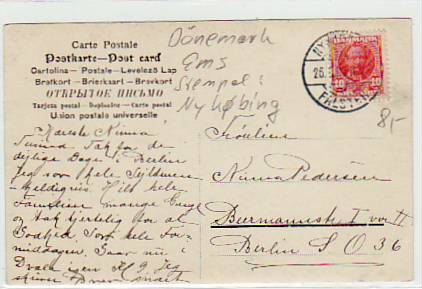 Carte Postale
Postkarte—Post card
Cartolina - Postale - Levelező Lap
Brefkort - Brierkaart - Brevkort
ОТКРЫТОЕ ПИСЬМО
Tarjeta postal - Dopisnice - Carte postal
Union postale universelle
Dänemark
Gms
Stempel:
Nykøbing
NYKJ
26.
FALSTER
10 10
8,-
Kæreste Ninna
Tusind Tak for de
dejlige Dage i Berlin
jeg
Hils hele
Familien mange Gange
og tak hjertelig for al
Godhed
middagen.
9 Jeg
skriver snart
Fräulein
Ninna Pedersen
Beermannstr I vor II
Berlin S O 36